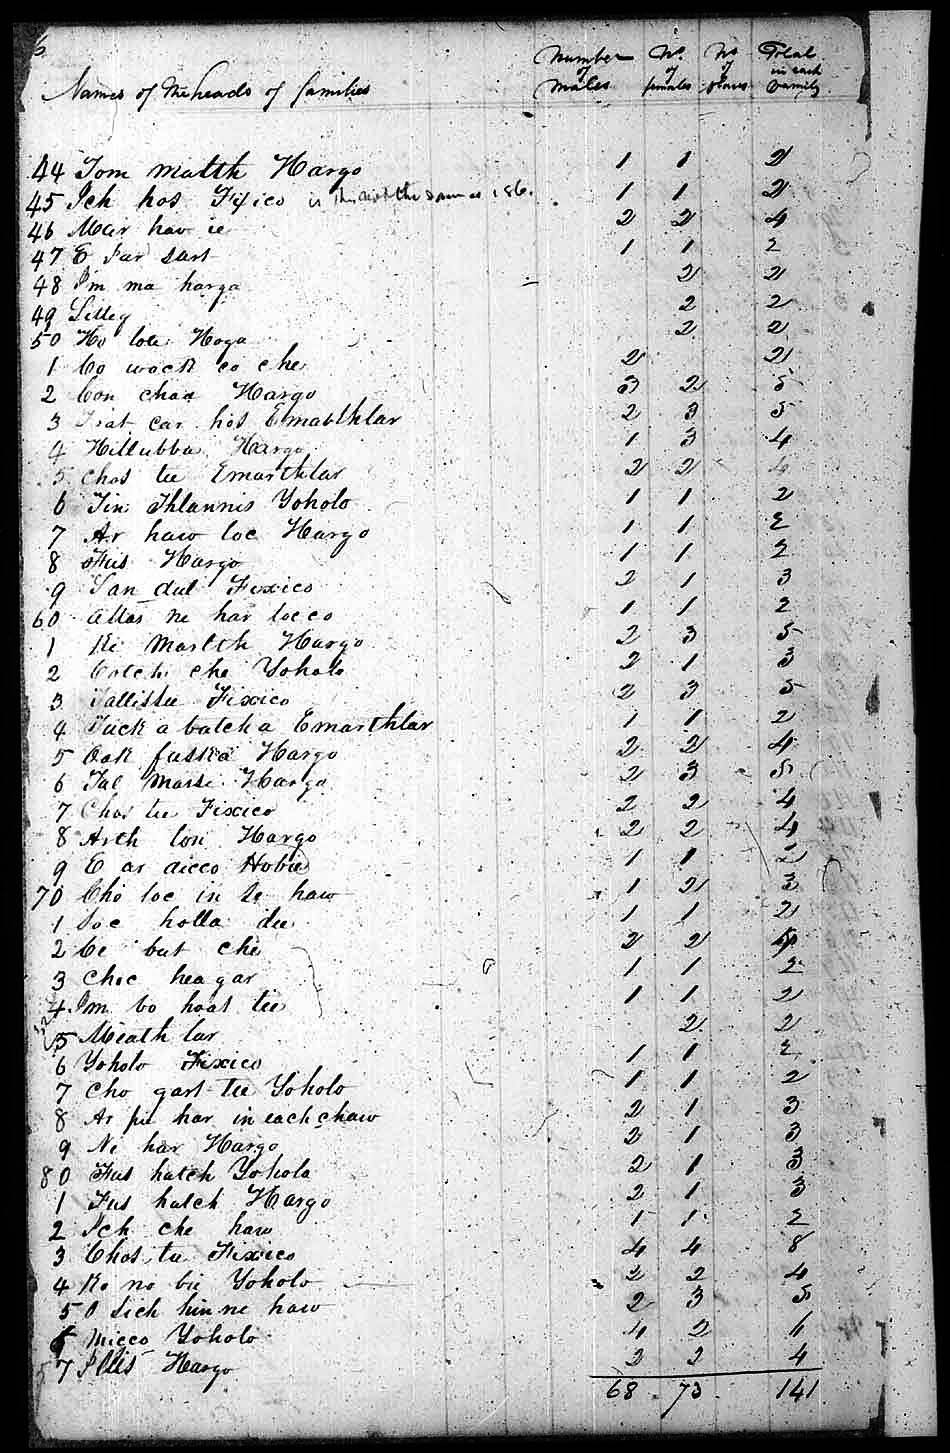 Names of the heads of families Number of Males No. of females No. of slaves Total in each Family
44 Tom matth Hargo 1 1 2
45 Ich hos Fixico is this not the same as 186. 1 1 2
46 Mar haw ie 2 2 4
47 E Far sart 1 1 2
48 Im ma harga 2 2
49 Lilley 2 2
50 Ho lota Hoga 2 2
1 Co wock co che 2 2
2 Con chaa Hargo 3 2 5
3 car hos Emarthlar 2 3 5
4 Hillubba Hargo 1 3 4
5 Chos tee Emarthlar 2 2 4
6 Tin Thlannis Yoholo 1 1 2
7 Ar haw loc Hargo 1 1 2
8 Fus Hargo 1 1 2
9 dul Fixico 2 1 3
60 ne har locco 1 1 2
1 Ki Martth Hargo 2 3 5
2 che Yoholo 2 1 3
3 Tallissee Fixico 2 3 5
4 Tuck a batch a Emarthlar 1 1 2
5 Oak fuskee Hargo 2 2 4
6 Tal Marse Hargo 2 3 5
7 Chos tee Fixico 2 2 4
8 Arth lon Hargo 2 2 4
9 E ar dicco Hobia 1 1 2
70 Cho loc in te haw 1 2 3
1 Soc holla dee 1 1 2
2 Ce but che 2 2 4
3 Choc hea gar 1 1 2
4 Im bo hoat tee 1 1 2
5 Miath lar 2 2
6 Yoholo Fixico 1 1 2
7 Cho gart tee Yoholo 1 1 2
8 Ar pu har in each chaw 2 1 3
9 Ne har Hargo 2 1 3
80 Fus hatch Yoholo 2 1 3
1 Fus hatch Hargo 2 1 3
2 Ich che haw 1 1 2
3 Chos te Fixico 4 4 8
4 Ko no bie Yoholo 2 2 4
5 O sich hin ne haw 2 3 5
6 Micco Yoholo 4 2 6
7 Hargo 2 2 4
68 73 141